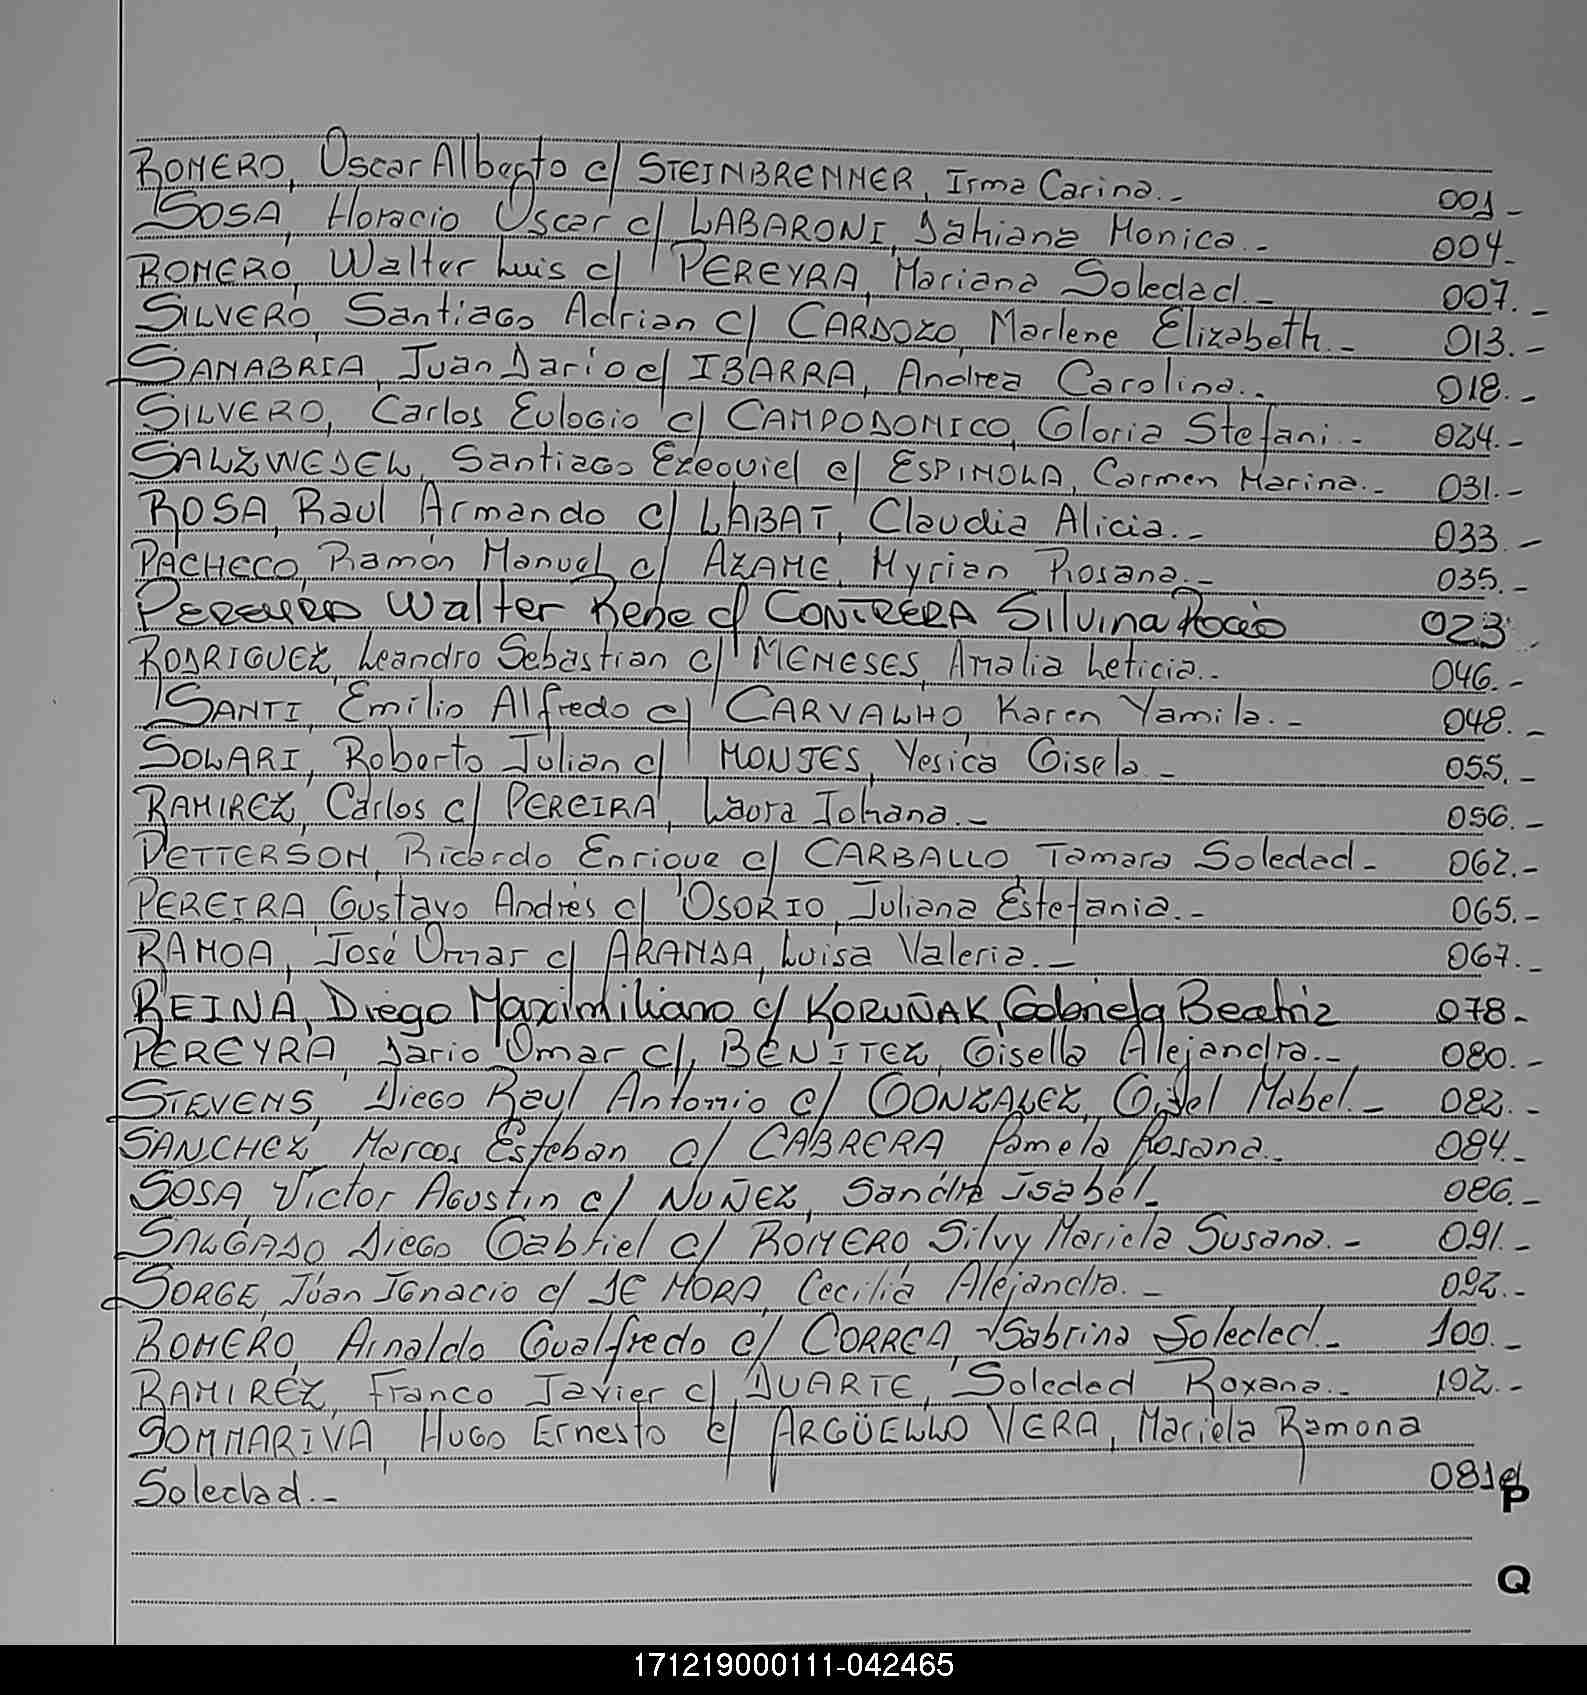 ROMERO, Oscar Alberto c/ STEINBRENNER, Irma Carina.- 001-
SOSA, Horacio Oscar c/ LABARONI, Dahiana Monica.- 004-
ROMERO, Walter Luis c/ PEREYRA, Mariana Soledad.- 007.-
SILVERO, Santiago Adrian c/ CARDOZO, Marlene Elizabeth.- 013.-
SANABRIA, Juan Dario c/ IBARRA, Andrea Carolina.- 018.-
SILVERO, Carlos Eulogio c/ CAMPODONICO, Gloria Stefani.- 024.-
SALZWEDEL, Santiago Ezequiel c/ ESPINOLA, Carmen Marina.- 031.-
ROSA, Raul Armando c/ LABAT, Claudia Alicia.- 033.-
PACHECO, Ramón Manuel c/ AZAME, Myrian Rosana.- 035.-
PEREYRA Walter Rene c/ CONTRERA Silvina Rocio 023
RODRIGUEZ, Leandro Sebastian c/ MENESES, Amalia Leticia.- 046.-
SANTI, Emilio Alfredo c/ CARVALHO, Karen Yamila.- 048.-
SOLARI, Roberto Julian c/ MONJES, Yesica Gisela.- 055.-
RAMIREZ, Carlos c/ PEREIRA, Laura Johana.- 056.-
PETTERSON, Ricardo Enrique c/ CARBALLO, Tamara Soledad- 062.-
PEREIRA Gustavo Andrés c/ OSORIO, Juliana Estefania.- 065.-
RAMOA, José Omar c/ ARANDA, Luisa Valeria.- 067.-
REINA, Diego Maximiliano c/ KORUÑAK, Gabriela Beatriz 078-
PEREYRA, Dario Omar c/ BENITEZ, Gisella Alejandra.- 080.-
STEVENS, Diego Raul Antonio c/ GONZALEZ, Gisel Mabel.- 082.-
SANCHEZ, Marcos Esteban c/ CABRERA Pamela Rosana.- 084.-
SOSA, Victor Agustin c/ NUÑEZ, Sandra Isabel.- 086.-
SALGADO Diego Gabriel c/ ROMERO Silvy Mariela Susana.- 091.-
SORGE, Juan Ignacio c/ DE MORA, Cecilia Alejandra.- 092.-
ROMERO, Arnaldo Gualfredo c/ CORREA, Sabrina Soledad.- 100.-
RAMIREZ, Franco Javier c/ DUARTE, Soledad Roxana.- 102.-
SOMMARIVA, Hugo Ernesto c/ ARGÜELLO VERA, Mariela Ramona
Soledad.- 081
P
Q
171219000111-042465